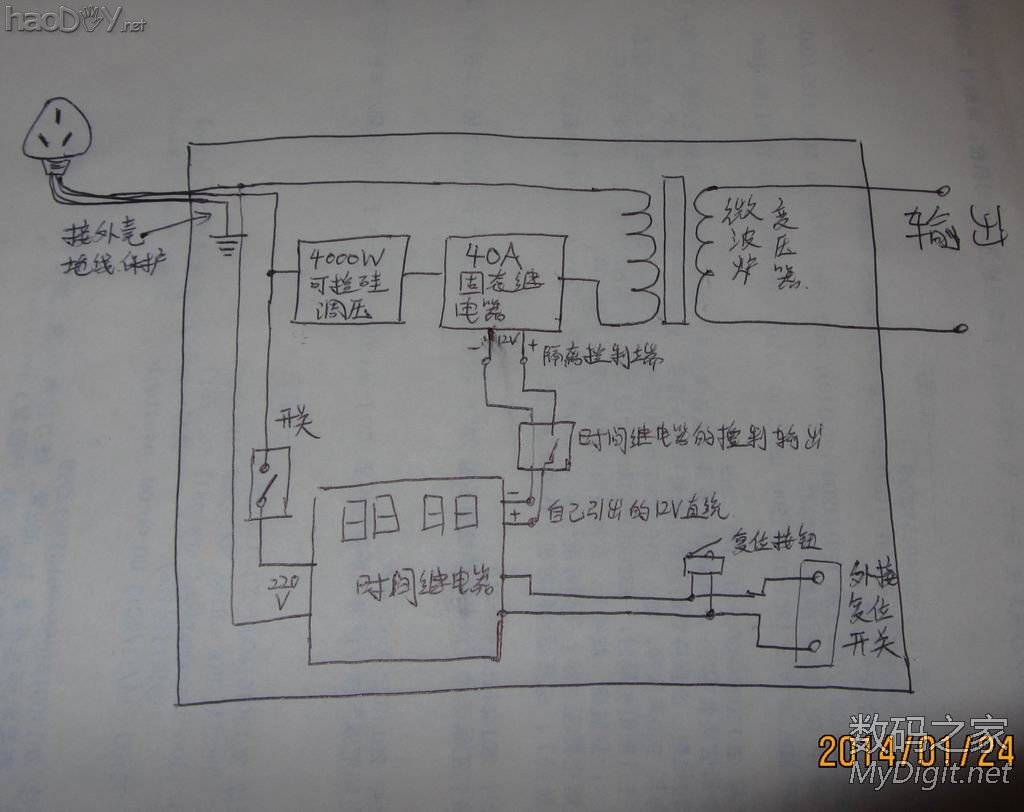 haoDIY.net
接外壳
地线.保护
4000W
可控硅
调压
40A
固态继
电器
- 12V +
隔离控制端
微波炉
变压器.
输出
开关
时间继电器的控制输出
-
+
自己引出的12V直流
88 88
时间继电器
220
V
复位按钮
外接
复位
开关
2014/01/24
数码之家
MyDigit.net